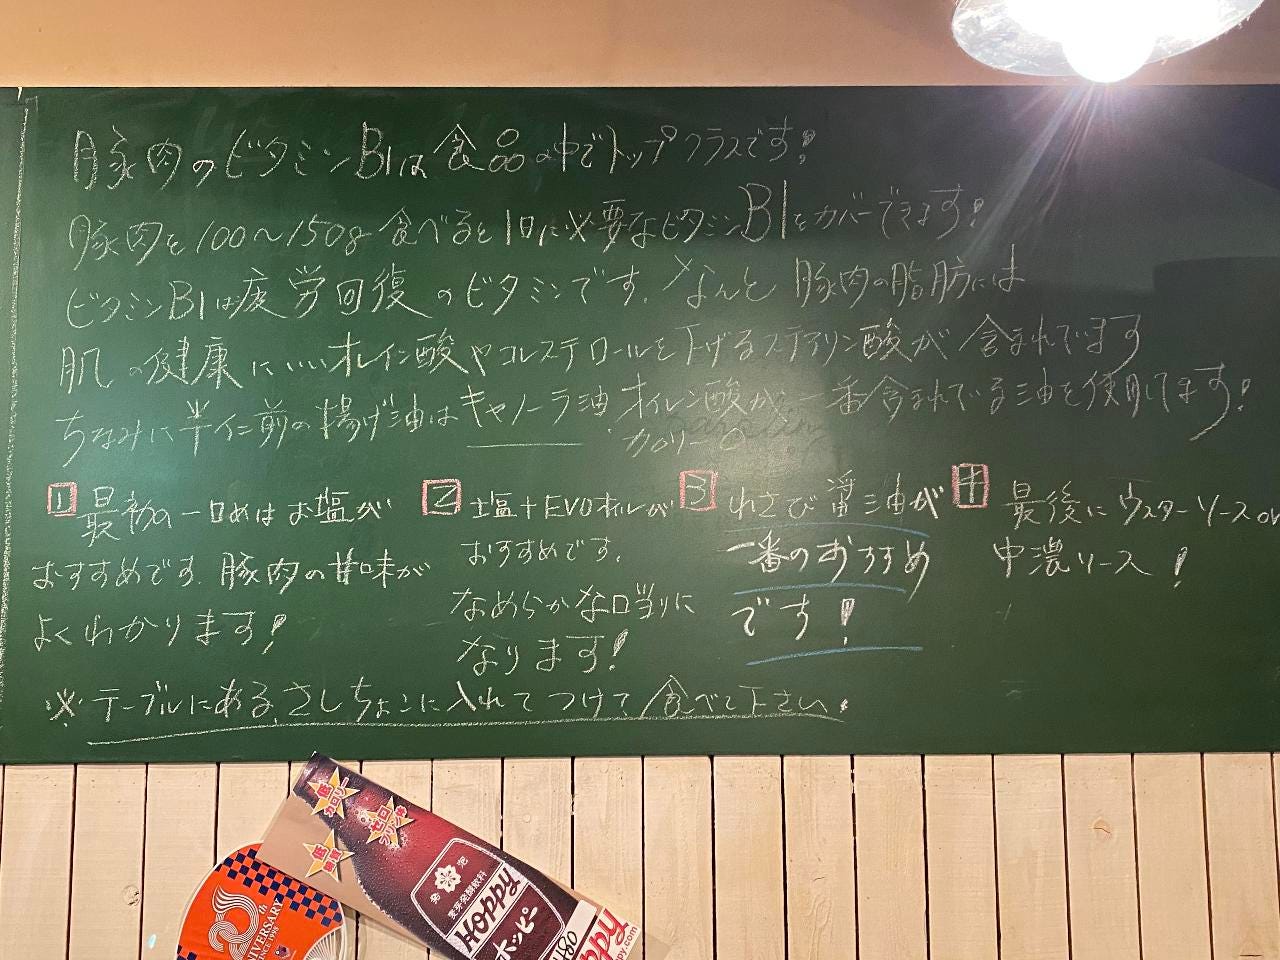 豚肉のビタミンB1は食品の中でトップクラスです!
豚肉を100〜150g食べると1日に必要なビタミンB1をカバーできます!
ビタミンB1は疲労回復のビタミンです。なんと豚肉の脂肪には
肌の健康にいいオレイン酸やコレステロールを下げるステアリン酸が含まれています
ちなみに半仁前の揚げ油はキャノーラ油。オイレン酸が一番含まれている油を使用してます!
カロリー0
1 最初の一口めはお塩が
おすすめです。豚肉の甘味が
よくわかります!
2 塩+EVOオイルが
おすすめです。
なめらかな口当りに
なります!
3 わさび醤油が
一番のおすすめ
です!
4 最後にウスターソースor
中濃ソース!
※テーブルにある、さしちょこに入れてつけて食べて下さい!
低カロリー
ゼロプリン体
低糖質
発泡
麦芽発酵飲料
HOPPY
ホッピー
20th
ANNIVERSARY
SINCE 1998